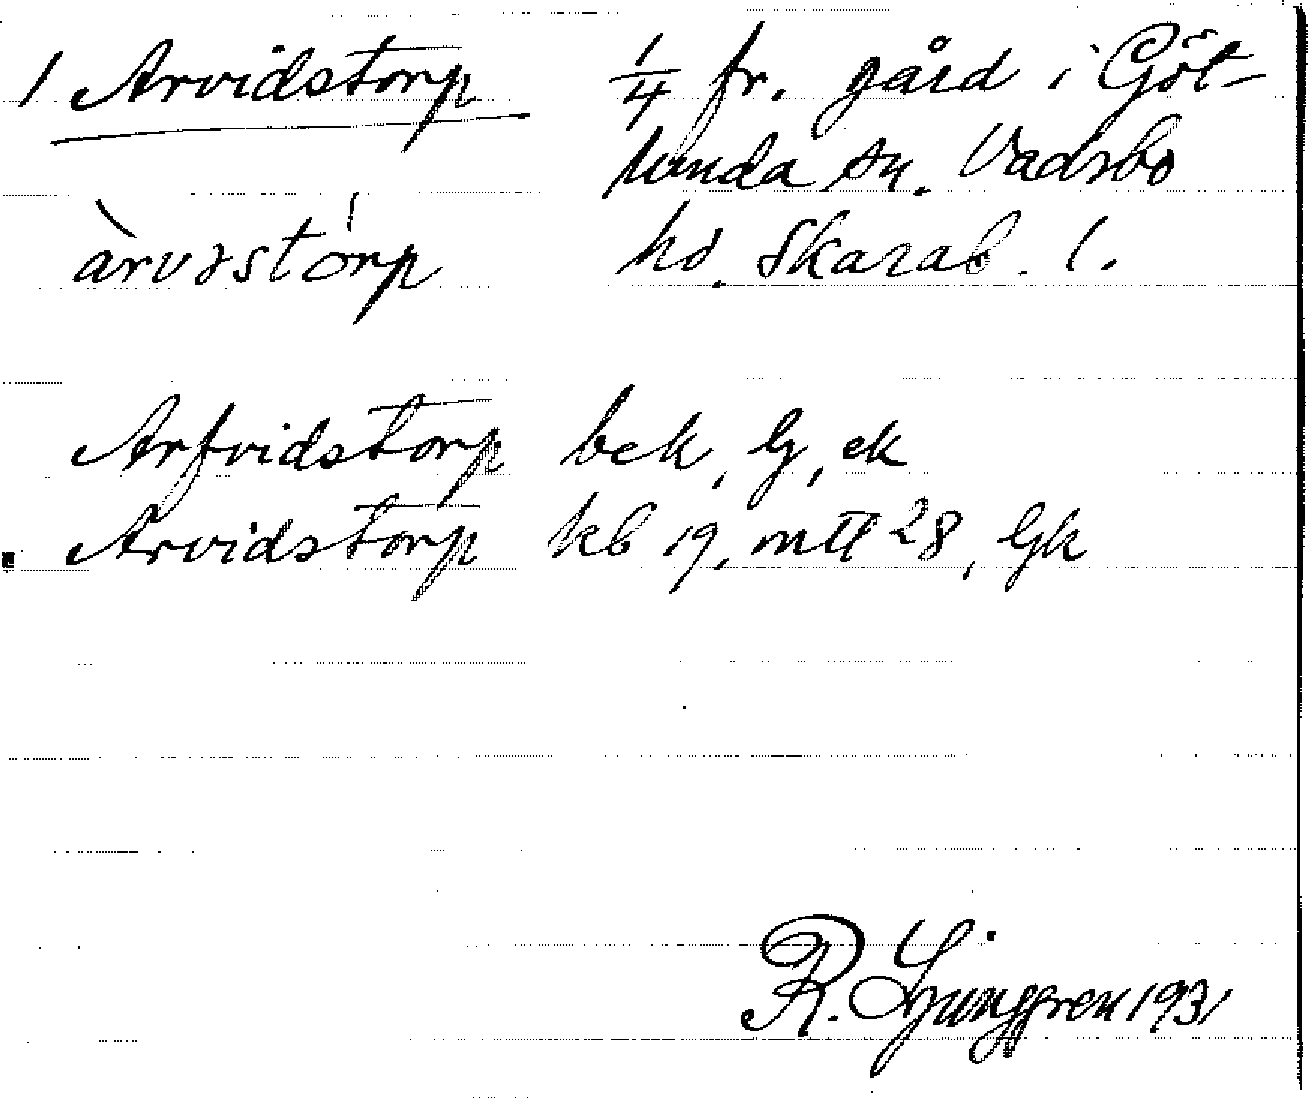 1 Arvidstorp 1/4 fr. gård i Göt-
lunda sn. Vadsbo
àrvəstórp hd. Skarab. l.
Arfvidstorp bek, G, ek
Arvidstorp kb 19, mtl 28, Gk
R. Ljunggren 1931